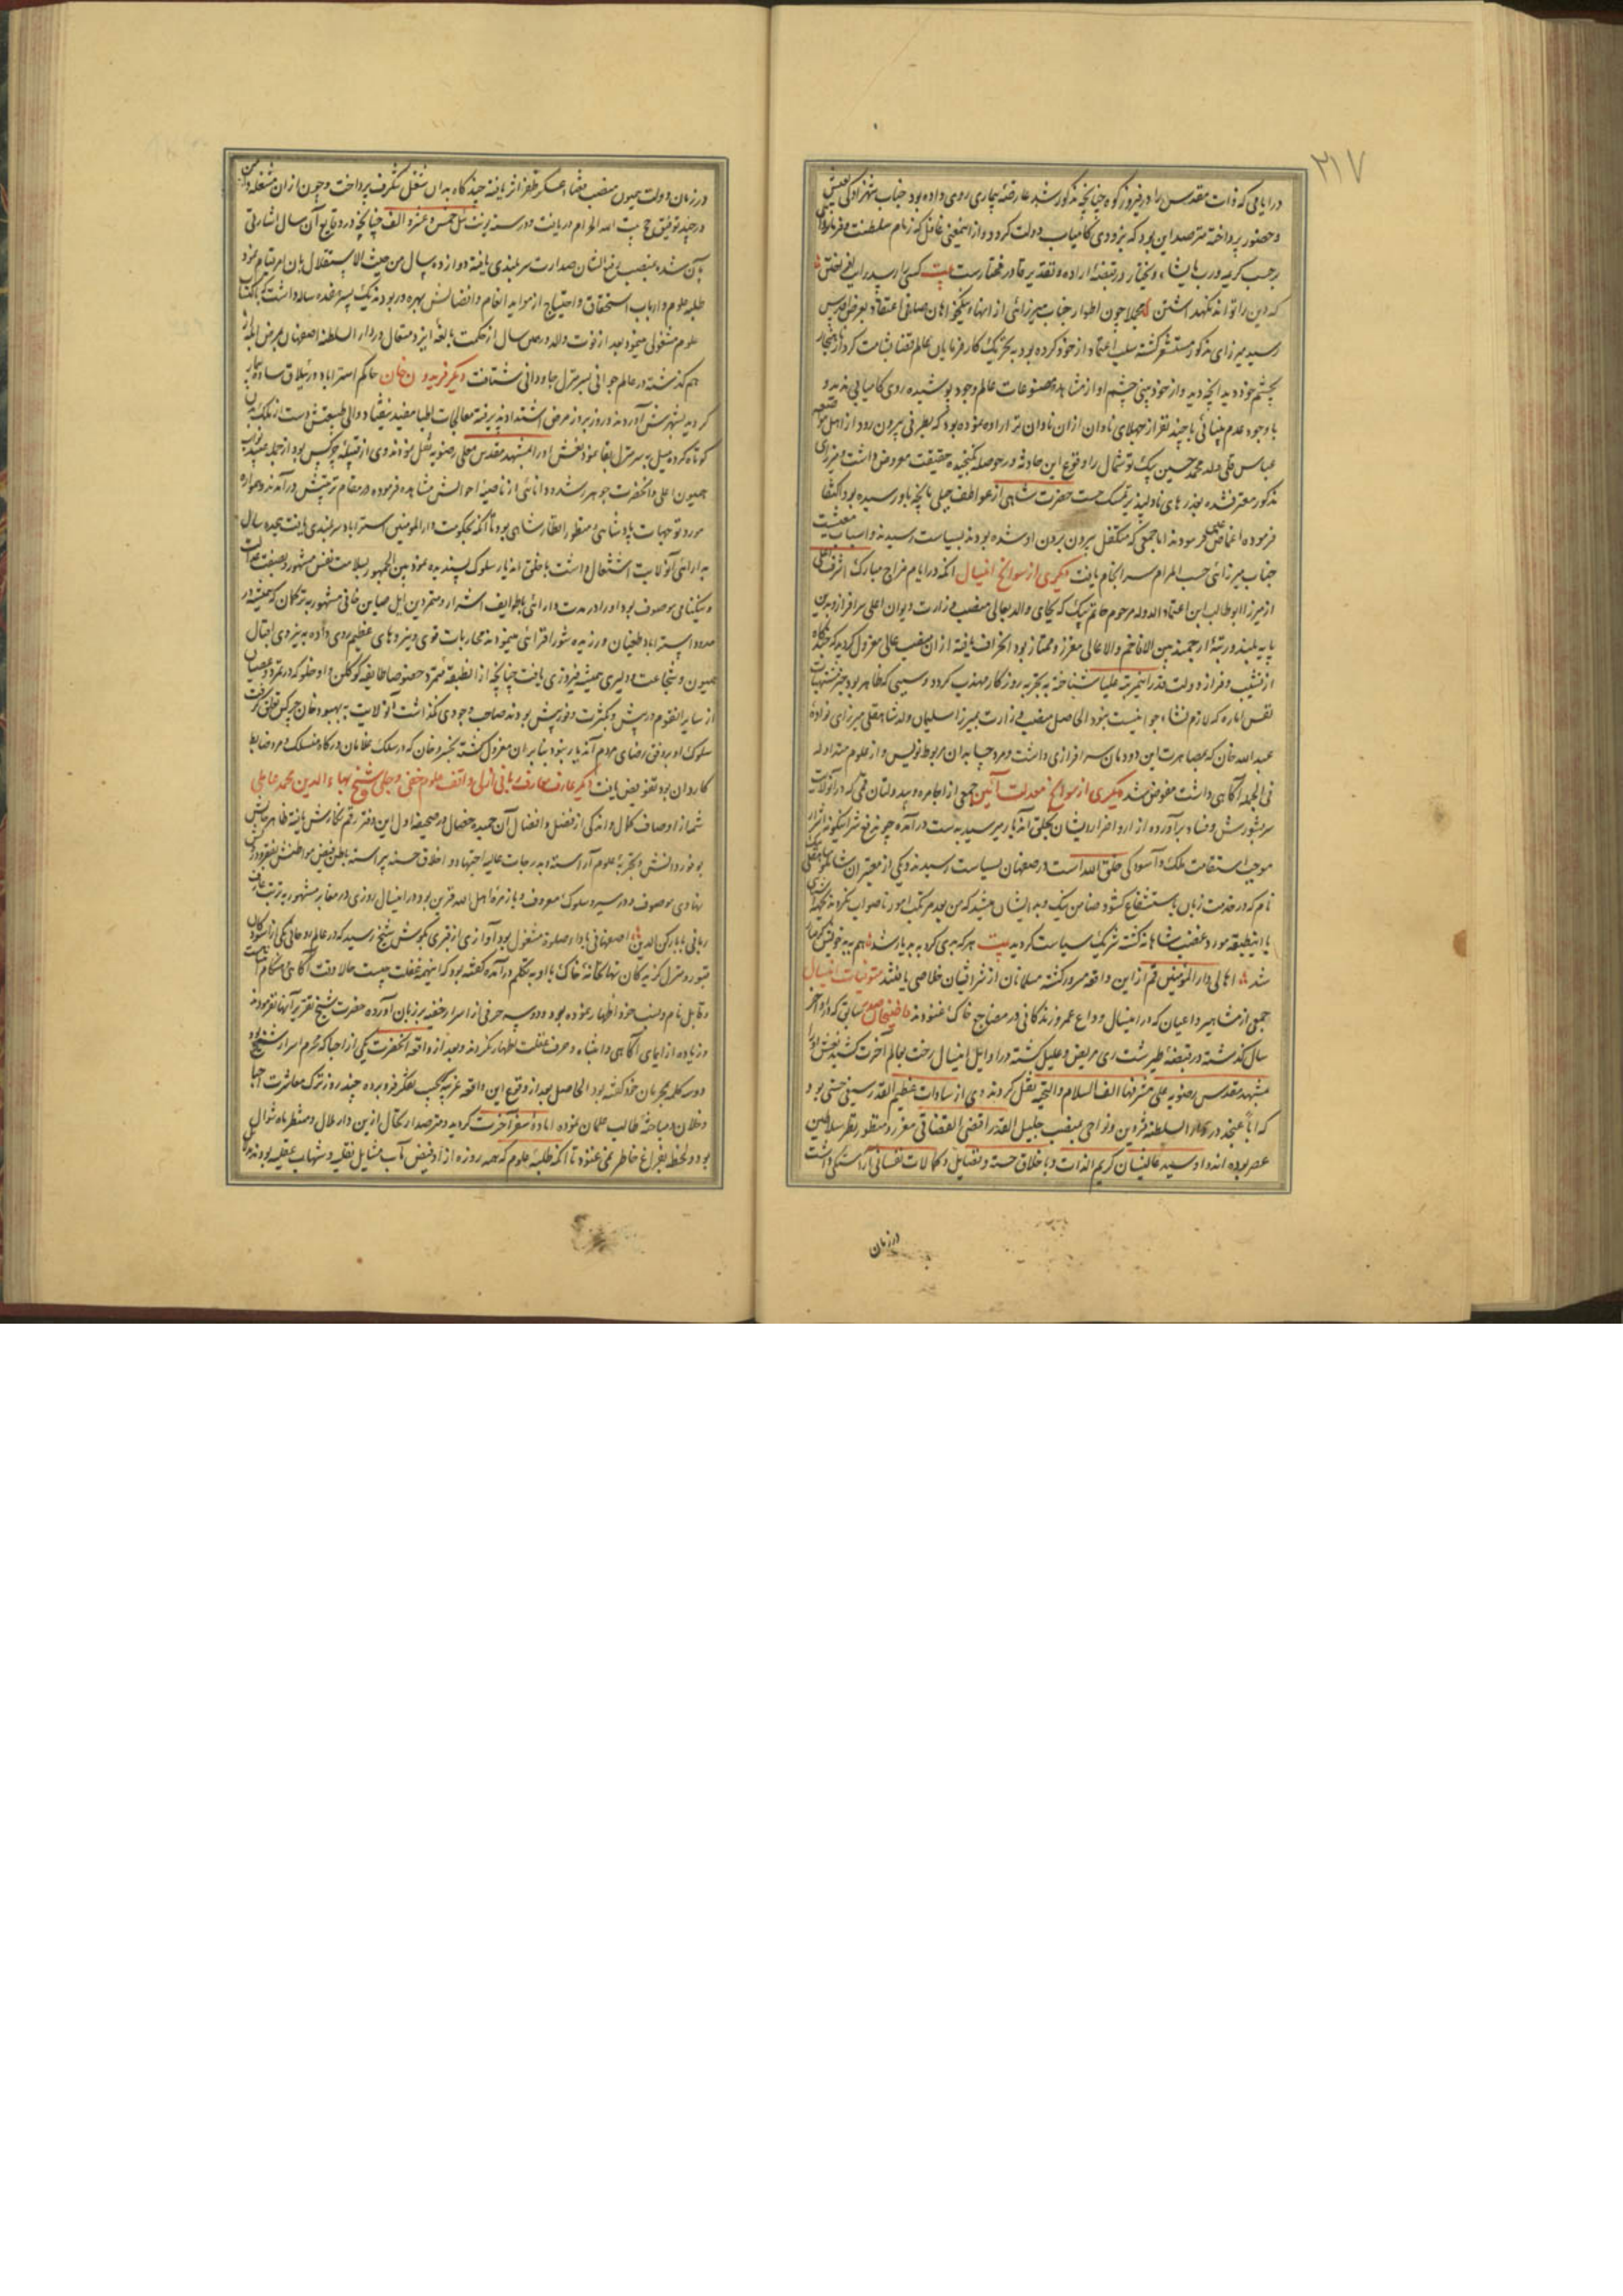 ۲۱۷
در ایامی که ذات مقدس را در فیروزکوه چنانچه مذکور شد عارضهٔ بیماری روی داده بود جناب شهزادگی بعیش
و حضور پرداخته مترصد این بود که بزودی کامیاب دولت گردد و ازینمعنی غافل که زمام سلطنت و فرمانروائی
بموجب کریمه وربک یخلق ما یشاء و یختار در قبضهٔ اراده و تقدیر قادر مختارست بیت کسی را رسد
که دین را تواند نگهداشتن مجملا چون اطوار جناب میرزائی از انهاء نیکخواهان صافی اعتقاد بعرض اقدس
رسید میرزای مذکور مستشعر گشته سلب اعتماد از خود کرده بود به تحریک کارفرمایان عالم قضا
بچشم خود دید آنچه دید و از خود بینی چشم او از مشاهدهٔ مصنوعات عالم وجود پوشیده روی کامیابی ندید و
با وجود عدم بینائی با چند نفر از جهلای نادان از آن نادان تر اراده نموده بود که بطرفی بیرون رود از اهل
عباس قلی ولد محمد حسین بیک توشمال را وقوع این حادثه در حوصله نگنجیده حقیقت معروض داشت و میرزای
مذکور معترف شده بعذرهای نادلپذیر تمسک جست حضرت شاهی از عواطف جبلی بآنچه باو رسیده بود اکتفا
فرموده اغماض عین فرمودند اما جمعی که متکفل بیرون بردن او شده بودند بسیاست رسیدند و اسباب معیشت
جناب میرزائی حسب المرام سرانجام یافت دیگری از سوانح اینسال آنکه در ایام مزاج مبارک اشرف اعلی
از میرزا ابوطالب ابن اعتماد الدوله مرحوم حاتم بیک که بجای والد بعالی منصب وزارت دیوان اعلی سرافراز و بدین
پایه بلند و رتبهٔ ارجمند بین الافاخم والاعالی معزز و ممتاز بود انحراف یافته از آن منصب عالی معزول گردید که چندگاه
از نشیب و فراز دولت قدر این مرتبه علیا شناخته به تجربه روزگار مهذب گردد و سببی که ظاهر بود جز مشتهیات
نفس اماره که لازم نشاء جوانیست نبود الحاصل منصب وزارت بمیرزا سلیمان ولد شاهقلی میرزای نواده
عبدالله خان که بمصاهرت این دودمان سرافرازی داشت و مرد جهاندان مربوط نویس و از علوم متداوله
فی الجمله آگاهی داشت مفوض شد دیگری از سوانح معدلت آئین جمعی از اجامره و بیدولتان قم که در آنولایت
سر بشورش و فساد برآورده از ارو اضرار ایشان بخلق آندیار میرسید بدست درآمده چون دفع شر اینگونه اشرار
موجب استقامت ملک و آسودگی خلق الله است در صفهان بسیاست رسیدند و یکی از معتبران شاملو شاهقلی
نام که در خدمت زبان باستشفاع گشود ضامن نیک و بد ایشان میشد که من بعد مرتکب امور ناصواب نگردند
با اینطبقه مورد غضب شاهانه گشته شریک سیاست گردید بیت هر که بدی کرد به بد یار شد هم به بد خویش گرفتار
شد اهالی دار المؤمنین قم از این واقعه مسرور گشته مسلمانان از شر ایشان خلاصی یافتند متوفیات اینسال
جمعی از مشاهیر و اعیان که در اینسال وداع عمر و زندگانی در مضاجع خاک غنودند قاضیخان صدر سابق که در اواخر
سال گذشته در قبضهٔ طبرشت ری مریض و علیل گشته در اوایل اینسال رخت بعالم آخرت کشید نعش او را
بمشهد مقدس رضویه علی مشرفها الف السلام والتحیه نقل کردند وی از سادات عظیم القدر سیفی حسنی بود
که ابا عن جد در دار السلطنه قزوین و نواحی بمنصب جلیل القدر اقضی القضاتی معزز و منظور نظر سلاطین
عصر بوده اند و او سید عالیشان کریم الذات و باخلاق حسنه و فضایل و کمالات نفسانی آراستگی داشت
در زمان
در زمان دولت همیون منصب قضاء عسکر ظفر اثر یافته چند گاه بدان شغل شگرف پرداخت و چون از آن مشغله
در چند توفیق حج بیت الله الحرام دریافت در سنه یونت ئیل خمس عشره و الف چنانچه در وقایع آن سال اشارتی
بآن شده بمنصب رفیع الشان صدارت سربلندی یافته دوازده سال من حیث الاستقلال بآن امر قیام نمود
طلبه علوم و ارباب استحقاق و احتیاج از مواید انعام و افضالش بهره ور بودند یک پسر هفده ساله داشت که باکتساب
علوم مشغولی مینمود بعد از فوت والد در همین سال از حکمت بالغهٔ ایزد متعال در دار السلطنه اصفهان بمرض
هم گذشته در عالم جوانی بسر منزل جاودانی شتافت دیگر فریدون خان حاکم استراباد در ییلاق ساور بیمار
گردید بشهرش آوردند و روز بروز مرض اشتداد پذیرفته معالجات اطبا مفید نیفتاد والی طبیعتش دست از ملک بدن
کوتاه کرده میل بسر منزل بقا نمود نعش او را بمشهد مقدس معلی رضویه نقل نمودند وی از قبیلهٔ چرکس بود از جمله
همیون اعلی و آنحضرت جوهر رشد و دانائی از ناصیهٔ احوالش مشاهده فرموده در مقام تربیتش درآمدند و همواره
مورد توجهات پادشاهی و منظور انظار شاهی بود تا آنکه بحکومت دار المؤمنین استراباد سربلندی یافت هجده سال
بدارائی آنولایت اشتغال داشت با خلق اندیار سلوک پسندیده نموده بین الجمهور بسلامت نفس مشهور و بصفت عدالت
و نیکنامی موصوف بود او را در مدت دارائی باطوایف اشرار و متمردین ایل صاین خانی مشهور به ترکمان که همیشه در
حدود استراباد طغیان ورزیده شور افزائی مینمودند محاربات قوی و نبردهای عظیم روی داده به نیروی اقبال
همیون و شجاعت و دلیری همیشه فیروزی یافت چنانچه از آن طبقه متمرد خصوصا طایفه گوکلن و اوخلو که در تمرد و عصیان
از سایر آن قوم در پیش و بکثرت و فوزش بیش بودند صاحب وجودی نگذاشت آنولایت به بهبود خان چرکس تعلق گرفت
سلوک او بر وفق رضای مردم آندیار نبود بنابر آن معزول گشته بخسرو خان که در سلک غلامان درگاه منسلک و مرد ضابط
کاردان بود تفویض یافت دیگر عارف معارف ربانی ازلی واقف علوم خفی و جلی شیخ بهاء الدین محمد عاملی
شمه از اوصاف کمال و اندکی از فضل و افضال آن حمیده خصال در صحیفه اول این دفتر رقم نگارش یافته ظاهر حالش
بوفور دانش و تجربهٔ علوم آراسته و بدرجات عالیه اجتهاد و اخلاق حسنه پیراسته باطن فیض مواطنش بفقر و درویش
نهادی موصوف و در سیر و سلوک معروف و با زمرهٔ اهل الله قرین بود در اینسال روزی در مقابر مشهور به تربت عارف
ربانی بابا رکن الدین اصفهانی باداء صلوة مشغول بود آوازی از قبری بگوش شیخ رسید که در عالم روحانی یکی از آسودگان
قبور و منزل گزیدگان نهانخانهٔ خاک با او به تکلم درآمده گفته بود که اینهمه غفلت چیست حالا وقت آگاهی و هنگام
وقایل نام و نسب خود اظهار نموده بود و دو سه حرفی از اسرار خفیه بر زبان آورده حضرت شیخ تقریر آنها نفرمودند
و زیاده از ایمای آگاهی و انتباه و حرف غفلت اظهار نکردند و بعد از واقعه آنحضرت یکی از احبا که محرم اسرار شیخ بود
دو سه کلمه بمحرمان خود گفته بود الحاصل بعد از وقوع این واقعه غریبه بجیب تفکر فرو برده چند روز ترک معاشرت احبا
و خلان و مباحثهٔ طالب علمان نموده آمادهٔ سفر آخرت گردید و مترصد ارتحال ازین دار ملال و منتظر ماه شوال
بود و لحظه بفراغ خاطر نمی غنود تا آنکه طلبهٔ علوم که همه روزه از آن فیض مآب مشایل نقلیه و شبهات عقلیه بودند